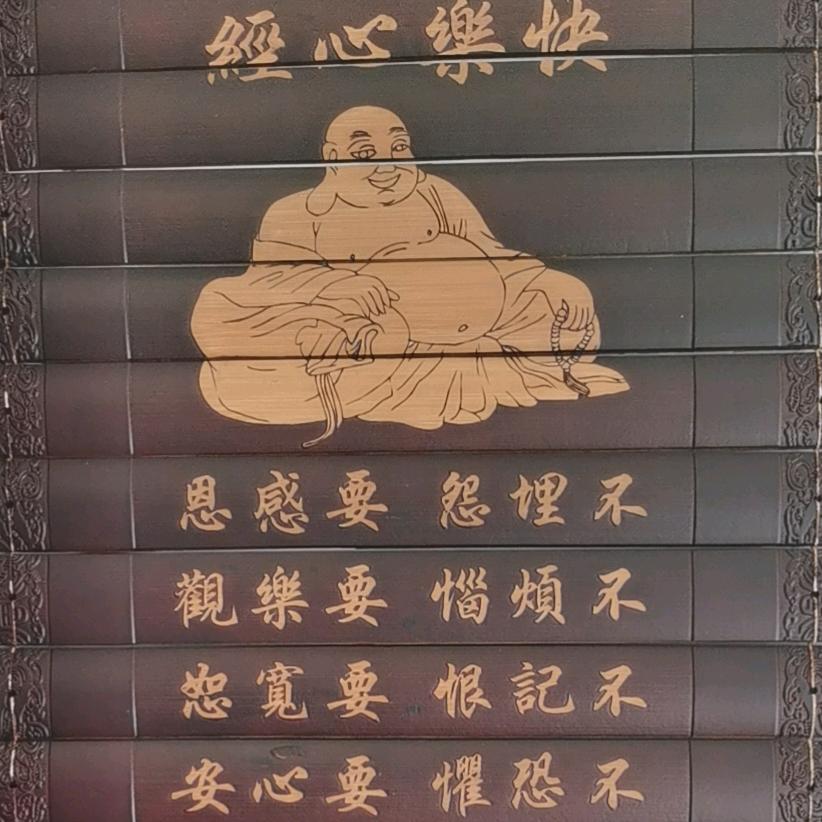 快樂心經
不埋怨 要感恩
不煩惱 要樂觀
不記恨 要寬恕
不恐懼 要心安